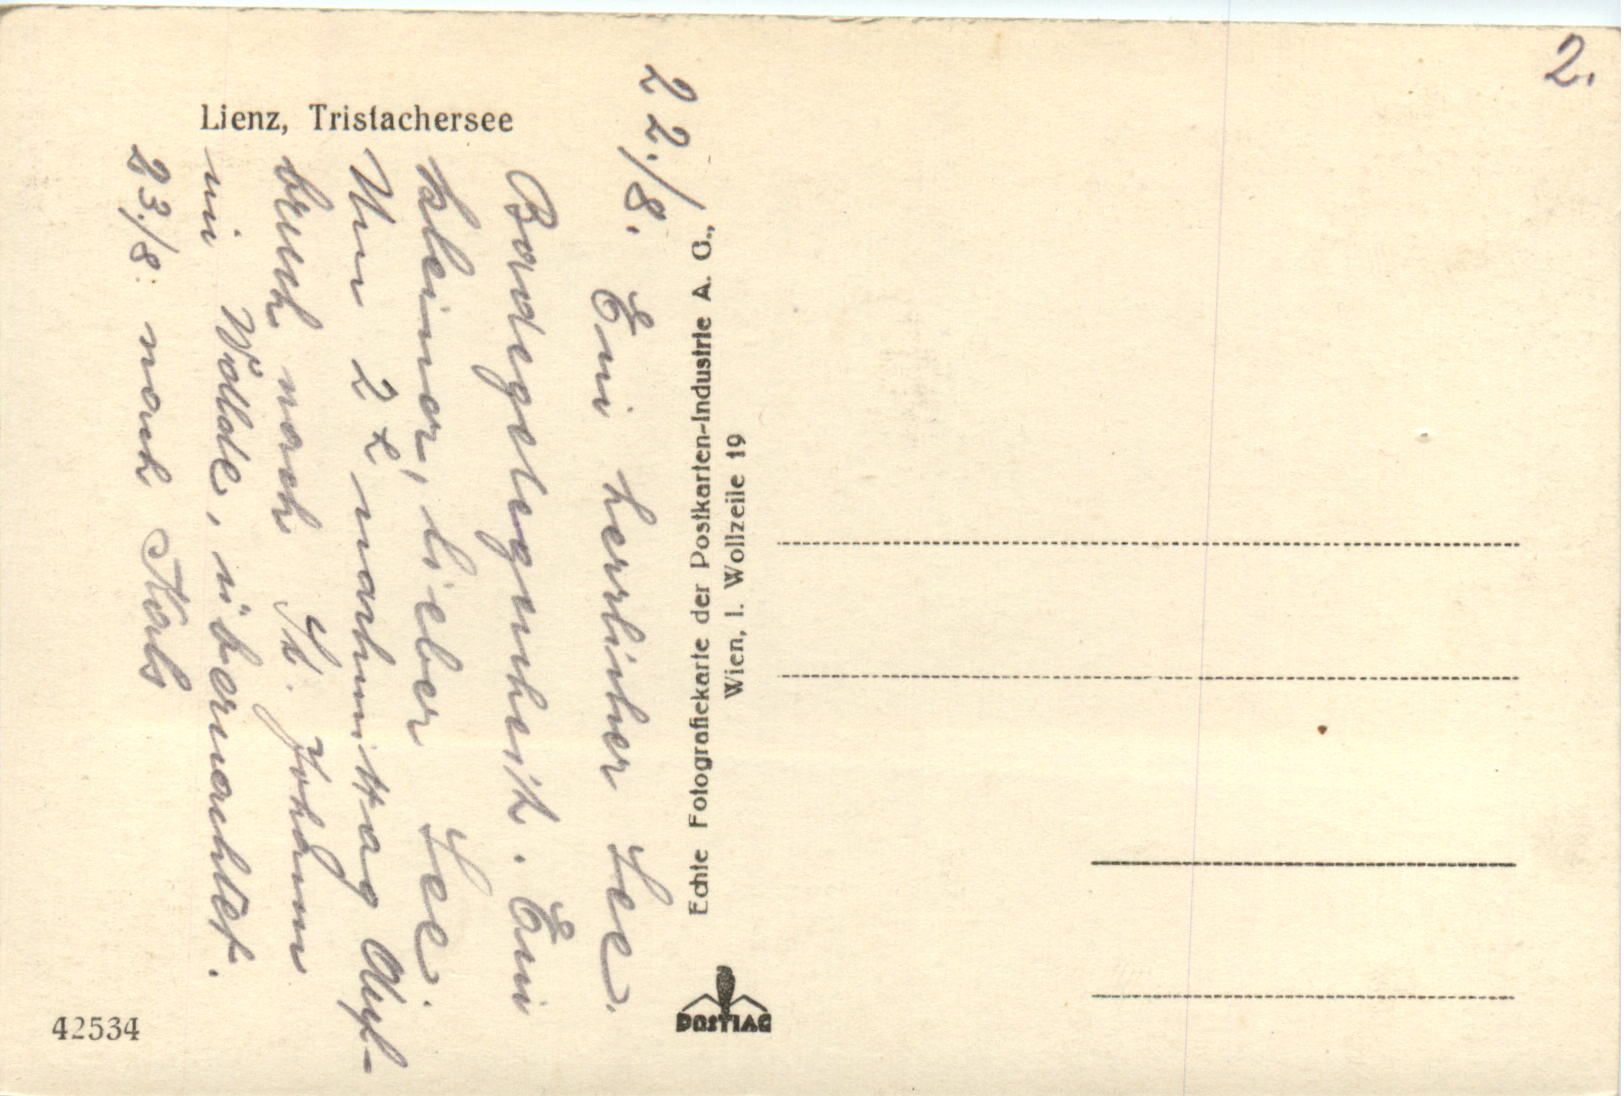 2.
Lienz, Tristachersee
22./8. Ein herrlicher See.
Badegelegenheit. Ein
kleiner, lieber See.
Um 2 h nachmittag Auf-
bruch nach St. Johann
im Walde, übernachtet.
23./8. nach Kals
Echte Fotografiekarte der Postkarten-Industrie A. G.,
Wien, I. Wollzeile 19
POSTIAG
42534